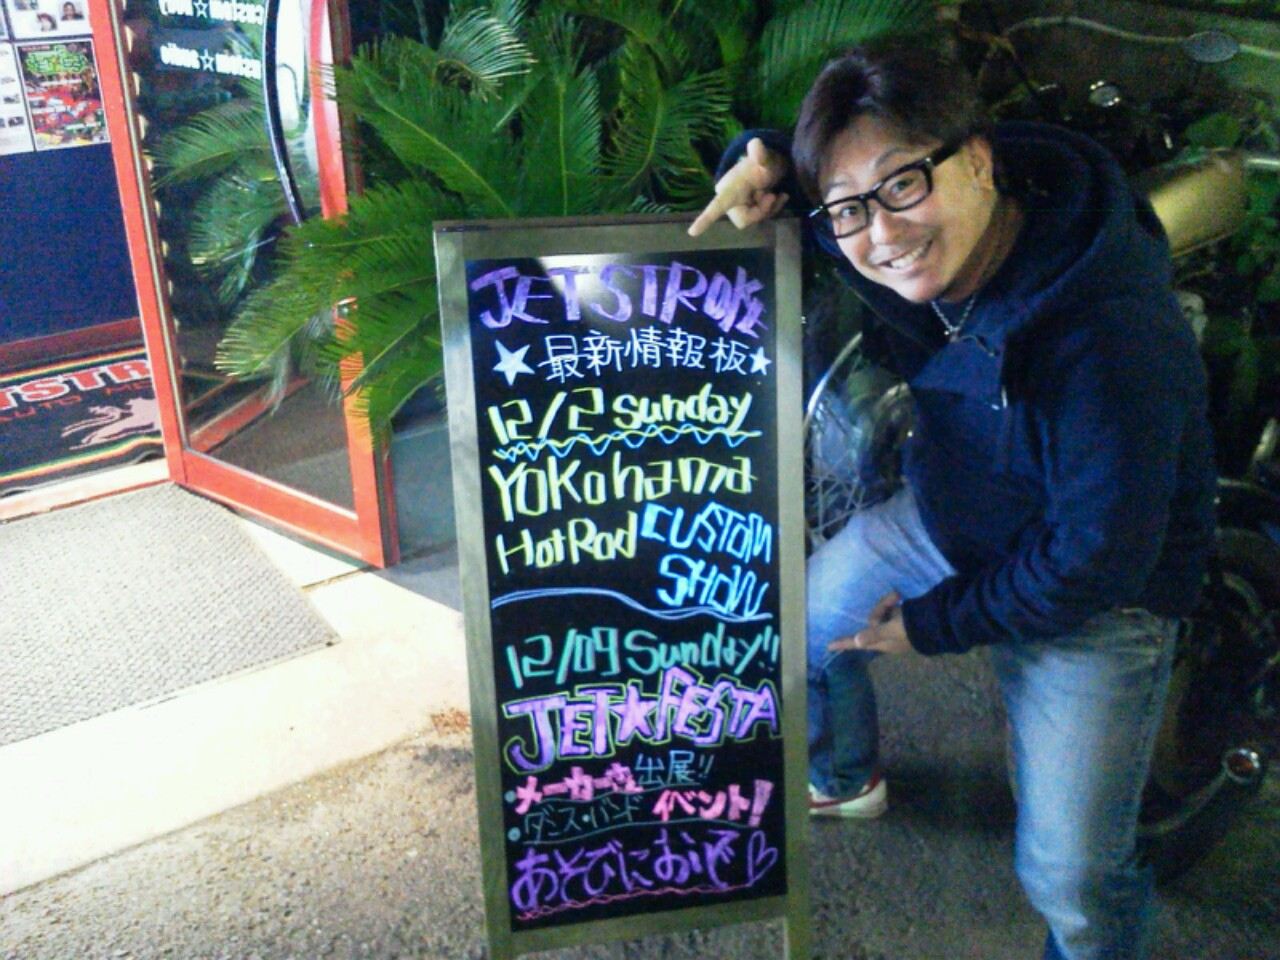 JETSTROKE
★最新情報板★
12/2 sunday
Yokohama
HotRod CUSTOM
SHOW
12/09 Sunday!!
JET★FESTA
・メーカーさん出展!!
・ダンス・バンド イベント!
あそびにおいで♡
custom☆
custom☆audio
TSTR
AUTO